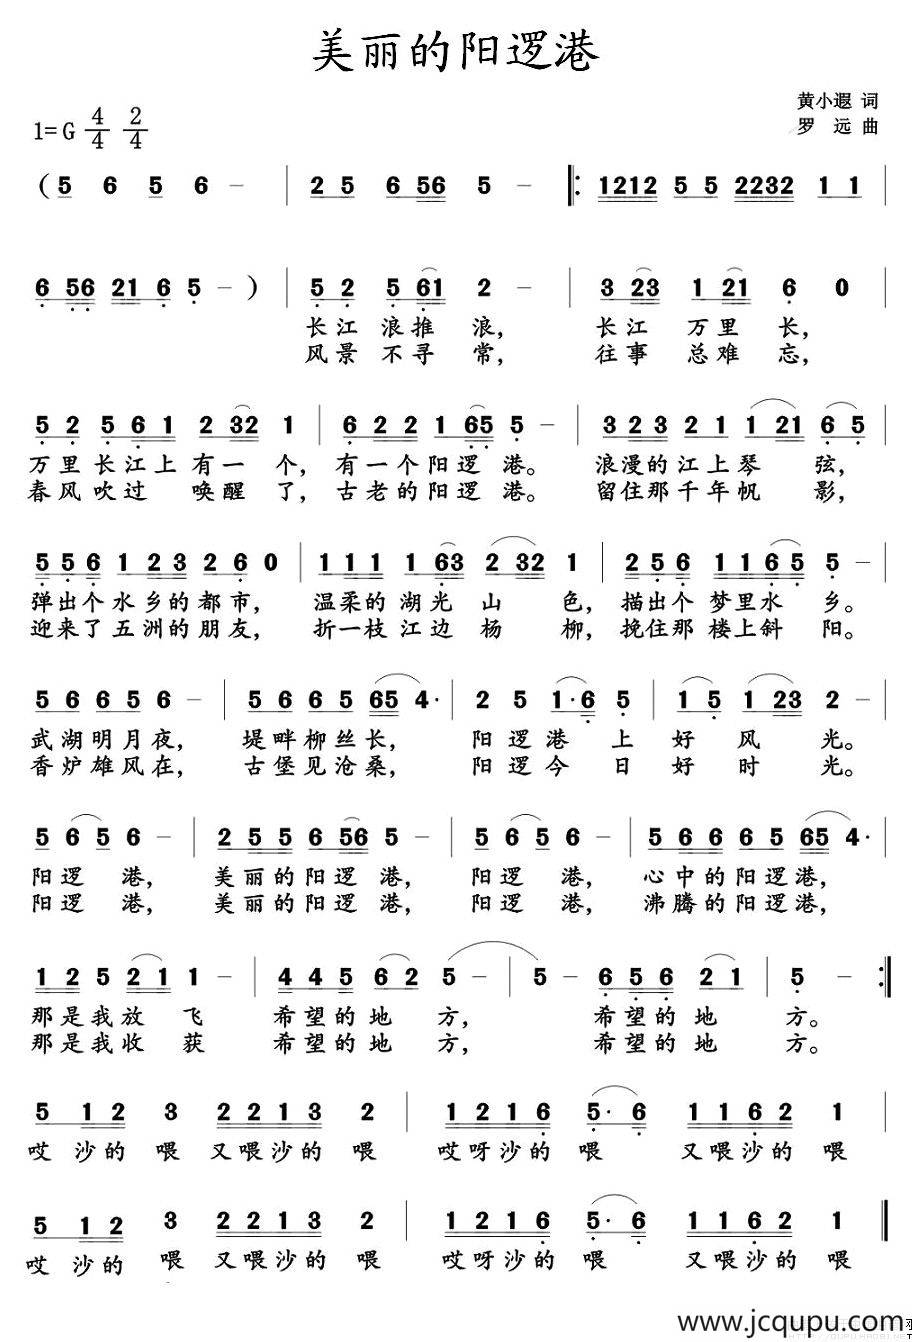 美丽的阳逻港
黄小遐 词
1=G 4/4 2/4
罗 远 曲
(5 6 5 6 – | 2 5 6 56 5 – |: 1212 5 5 2232 1 1 |
6 56 21 6 5 – ) | 5 2 5 61 2 – | 3 23 1 21 6 0 |
长江浪推浪, 长江万里长,
风景不寻常, 往事总难忘,
5 2 5 6 1 2 32 1 | 6 2 2 1 65 5 – | 3 2 3 2 1 1 21 6 5 |
万里长江上有一个, 有一个阳逻港。 浪漫的江上琴弦,
春风吹过唤醒了, 古老的阳逻港。 留住那千年帆影,
5 5 6 1 2 3 2 6 0 | 1 1 1 1 63 2 32 1 | 2 5 6 1 1 6 5 5 – |
弹出个水乡的都市, 温柔的湖光山色, 描出个梦里水乡。
迎来了五洲的朋友, 折一枝江边杨柳, 挽住那楼上斜阳。
5 6 6 5 6 – | 5 6 6 5 65 4· | 2 5 1·6 5 | 1 5 1 23 2 – |
武湖明月夜, 堤畔柳丝长, 阳逻港上好风光。
香炉雄风在, 古堡见沧桑, 阳逻今日好时光。
5 6 5 6 – | 2 5 5 6 56 5 – | 5 6 5 6 – | 5 6 6 6 5 65 4· |
阳逻港, 美丽的阳逻港, 阳逻港, 心中的阳逻港,
阳逻港, 美丽的阳逻港, 阳逻港, 沸腾的阳逻港,
1 2 5 2 1 1 – | 4 4 5 6 2 5 – | 5 – 6 5 6 2 1 | 5 – :|
那是我放飞希望的地方, 希望的地方。
那是我收获希望的地方, 希望的地方。
5 1 2 3 2 2 1 3 2 | 1 2 1 6 5· 6 1 1 6 2 1 |
哎沙的喂又喂沙的喂 哎呀沙的喂又喂沙的喂
5 1 2 3 2 2 1 3 2 | 1 2 1 6 5· 6 1 1 6 2 1 ‖
哎沙的喂又喂沙的喂 哎呀沙的喂又喂沙的喂
www.jcqupu.com